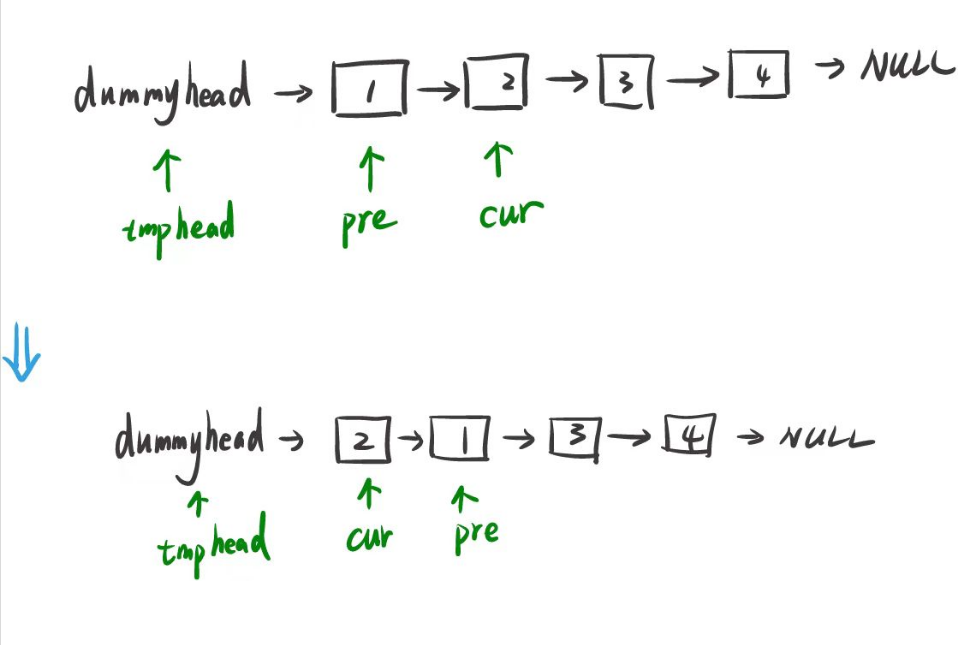 dummyhead → 1 → 2 → 3 → 4 → NULL
tmphead pre cur
dummyhead → 2 → 1 → 3 → 4 → NULL
tmphead cur pre